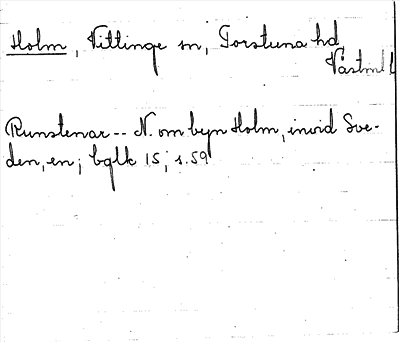 Holm, Vittinge sn, Torstuna hd
Västml l
Runstenar -- N. om byn Holm, invid Sve-
den, en; bglk 15; s. 59